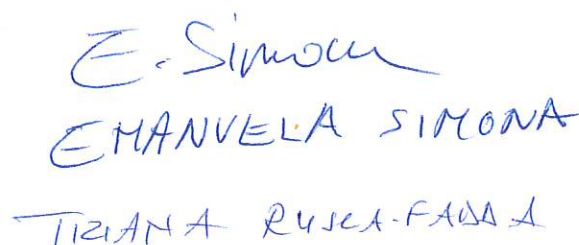 E. Simona
EMANUELA SIMONA
TIZIANA RUSCA-FADDA